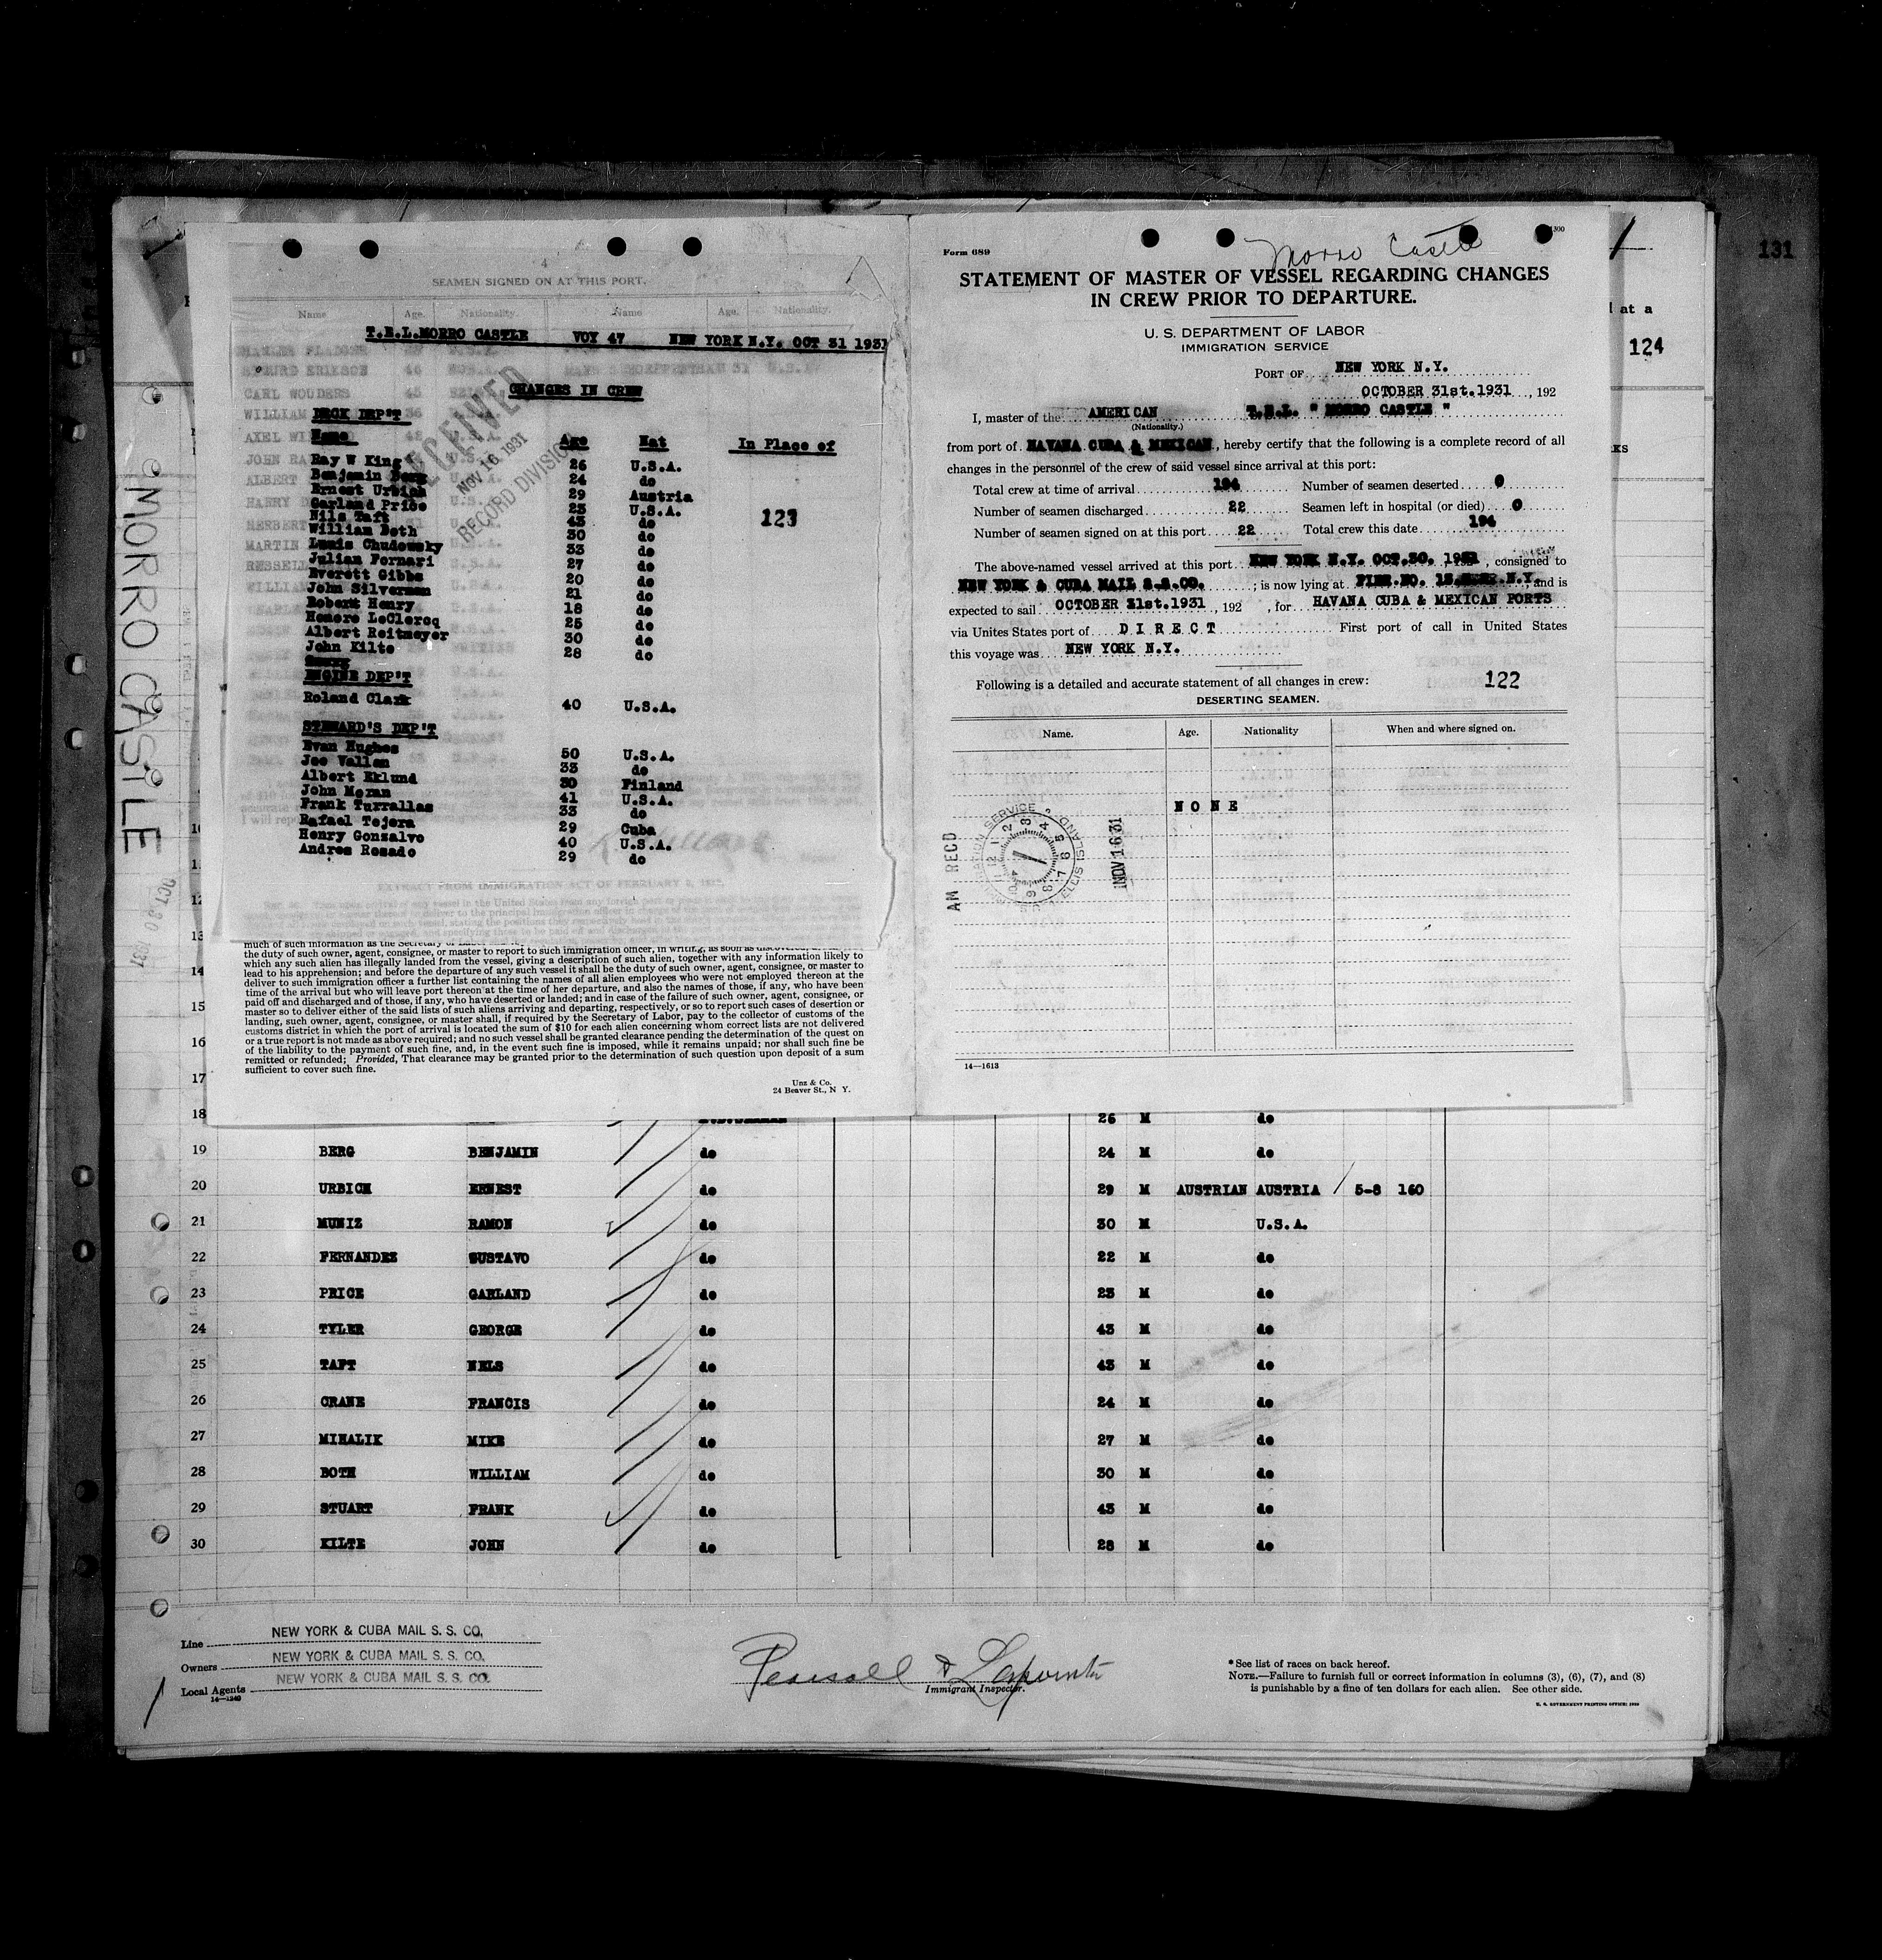 4
SEAMEN SIGNED ON AT THIS PORT.
Name Age. Nationality. Name Age. Nationality.
T.E.L.MORRO CASTLE VOY 47 NEW YORK N.Y. OCT 31 1931
CHANGES IN CREW
DECK DEP'T
Name Age Nat In Place of
Ray W King 26 U.S.A.
Benjamin Berg 24 do
Ernest Urbich 29 Austria
Garland Price 23 U.S.A.
Nils Taft 43 do
William Both 30 do
Louis Chudowsky 33 do
Julian Fornari 27 do
Everett Gibbs 20 do
John Silverman 21 do
Robert Henry 18 do
Honore LeClercq 25 do
Albert Reitmeyer 30 do
John Kilte 28 do
ENGINE DEP'T
Roland Clark 40 U.S.A.
STEWARD'S DEP'T
Evan Hughes 50 U.S.A.
Joe Vallen 33 do
Albert Eklund 30 Finland
John Moran 41 U.S.A.
Frank Turrallas 33 do
Rafael Tejera 29 Cuba
Henry Gonsalvo 40 U.S.A.
Andres Rosado 29 do
123
RECEIVED
NOV 16 1931
RECORD DIVISION
EXTRACT FROM IMMIGRATION ACT OF FEBRUARY 5, 1917.
much of such information as the Secretary of
the duty of such owner, agent, consignee, or master to report to such immigration officer, in writing, as soon as discovered,
which any such alien has illegally landed from the vessel, giving a description of such alien, together with any information likely to
lead to his apprehension; and before the departure of any such vessel it shall be the duty of such owner, agent, consignee, or master to
deliver to such immigration officer a further list containing the names of all alien employees who were not employed thereon at the
time of the arrival but who will leave port thereon at the time of her departure, and also the names of those, if any, who have been
paid off and discharged and of those, if any, who have deserted or landed; and in case of the failure of such owner, agent, consignee, or
master so to deliver either of the said lists of such aliens arriving and departing, respectively, or so to report such cases of desertion or
landing, such owner, agent, consignee, or master shall, if required by the Secretary of Labor, pay to the collector of customs of the
customs district in which the port of arrival is located the sum of $10 for each alien concerning whom correct lists are not delivered
or a true report is not made as above required; and no such vessel shall be granted clearance pending the determination of the quest on
of the liability to the payment of such fine, and, in the event such fine is imposed, while it remains unpaid; nor shall such fine be
remitted or refunded; Provided, That clearance may be granted prior to the determination of such question upon deposit of a sum
sufficient to cover such fine.
Unz & Co.
24 Beaver St., N Y.
Form 689
Morro Castle
1300
STATEMENT OF MASTER OF VESSEL REGARDING CHANGES
IN CREW PRIOR TO DEPARTURE.
U. S. DEPARTMENT OF LABOR
IMMIGRATION SERVICE
PORT OF NEW YORK N.Y.
OCTOBER 31st.1931, 192
I, master of the AMERICAN T.E.L. " MORRO CASTLE "
(Nationality.)
from port of HAVANA CUBA & MEXICAN, hereby certify that the following is a complete record of all
changes in the personnel of the crew of said vessel since arrival at this port:
Total crew at time of arrival 194 Number of seamen deserted 0
Number of seamen discharged 22 Seamen left in hospital (or died) 0
Number of seamen signed on at this port 22 Total crew this date 194
The above-named vessel arrived at this port NEW YORK N.Y. OCT.30. 1931, consigned to
NEW YORK & CUBA MAIL S.S.CO. ; is now lying at PIER.NO. N.Y. and is
expected to sail OCTOBER 31st.1931, 192 , for HAVANA CUBA & MEXICAN PORTS
via Unites States port of DIRECT First port of call in United States
this voyage was NEW YORK N.Y.
Following is a detailed and accurate statement of all changes in crew: 122
DESERTING SEAMEN.
Name. Age. Nationality When and where signed on.
NONE
AM RECD
IMMIGRATION SERVICE ELLIS ISLAND
NOV 16 31
14—1613
131
124
MORRO CASTLE
OCT 30 1931
12
13
14
15
16
17
18 26 M do
19 BERG BENJAMIN do 24 M do
20 URBICH ERNEST do 29 M AUSTRIAN AUSTRIA 5-8 160
21 MUNIZ RAMON do 30 M U.S.A.
22 FERNANDEZ GUSTAVO do 22 M do
23 PRICE GARLAND do 23 M do
24 TYLER GEORGE do 43 M do
25 TAFT NELS do 43 M do
26 CRANE FRANCIS do 24 M do
27 MIHALIK MIKE do 27 M do
28 BOTH WILLIAM do 30 M do
29 STUART FRANK do 43 M do
30 KILTE JOHN do 28 M do
Line NEW YORK & CUBA MAIL S. S. CO.
Owners NEW YORK & CUBA MAIL S. S. CO.
Local Agents NEW YORK & CUBA MAIL S. S. CO.
14—1240
Immigrant Inspector.
*See list of races on back hereof.
NOTE.—Failure to furnish full or correct information in columns (3), (6), (7), and (8)
is punishable by a fine of ten dollars for each alien. See other side.